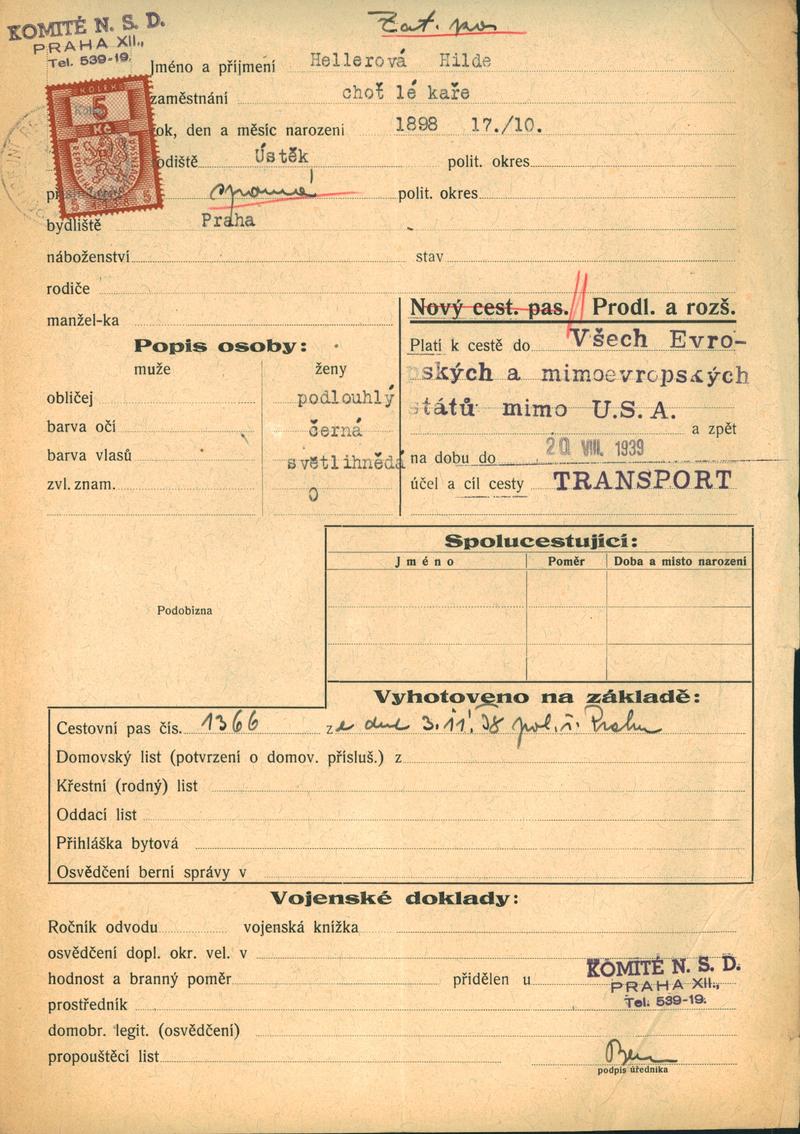 KOMITÉ N. S. D.
PRAHA XII.,
Tel. 539-19.
Zat. pas
Jméno a příjmení Hellerová Hilde
zaměstnání choť lé kaře
rok, den a měsíc narození 1898 17./10.
rodiště Ústěk polit. okres
KOLEK
5
Kč
5 5
polit. okres
bydliště Praha
náboženství stav
rodiče
manžel-ka
Nový cest. pas. Prodl. a rozš.
Popis osoby:
muže ženy
Platí k cestě do Všech Evro-
pských a mimoevropských
států mimo U.S.A.
a zpět
obličej podlouhlý
barva očí černá
barva vlasů světlihnědá
zvl. znam. 0
na dobu do 20 VIII. 1939
účel a cíl cesty TRANSPORT
Spolucestující:
Jméno Poměr Doba a místo narození
Podobizna
Vyhotoveno na základě:
Cestovní pas čís. 1366 ze dne 3.11.38 pol. ř. Praha
Domovský list (potvrzení o domov. přísluš.) z
Křestní (rodný) list
Oddací list
Přihláška bytová
Osvědčení berní správy v
Vojenské doklady:
Ročník odvodu vojenská knížka
osvědčení dopl. okr. vel. v
hodnost a branný poměr přidělen u
KOMITÉ N. S. D.
PRAHA XII.,
Tel. 539-19.
prostředník
domobr. legit. (osvědčení)
propouštěcí list
podpis úředníka